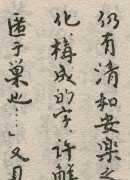 仍有清和安樂之
化、構成的字、许鲜
遥于巢也…」又見